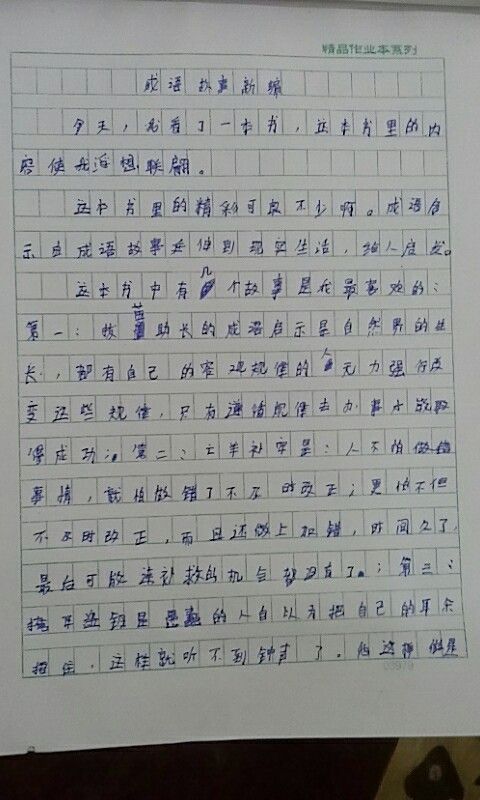 精品作业本系列
成语故事新编
今天,我看了一本书,这本书里的内
容使我浮想联翩。
这本书里的精彩可良不少啊。成语启
示自成语故事延伸到现实生活,给人启发。
这本书中有几个故事是我最喜欢的:
第一:拔苗助长的成语启示是自然界的生
长,都有自己的客观规律的人无力强行改
变这些规律,只有遵循规律去办事才能取
得成功;第二:亡羊补牢是:人不怕做错
事情,就怕做错了不及时改正;更怕不但
不及时改正,而且还做上加错,时间久了,
最后可能连补救的机会都没有了。;第三:
掩耳盗铃是愚蠢的人自以为把自己的耳朵
捂住,这样就听不到钟声了。但这样做是
03979